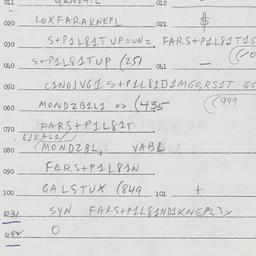 011 012
020 LOXFARAKNEPL 021 $
030 S+P1L81TUP=UN= FARS+P1L81T1S
040 S+P1L81TUP (251 041 —
050 C1ND1VG1 S+P1L81D1MGORS1T
060 MONDZB1L1 xx (435 (999
070 FARS+P1L81T
080 (MONDZBL, VABL
090 FARS+P1L81N
100 GALSTUX (849 101 +
031 SYN FARS+P1L81ND1KNEPL3X
042 O